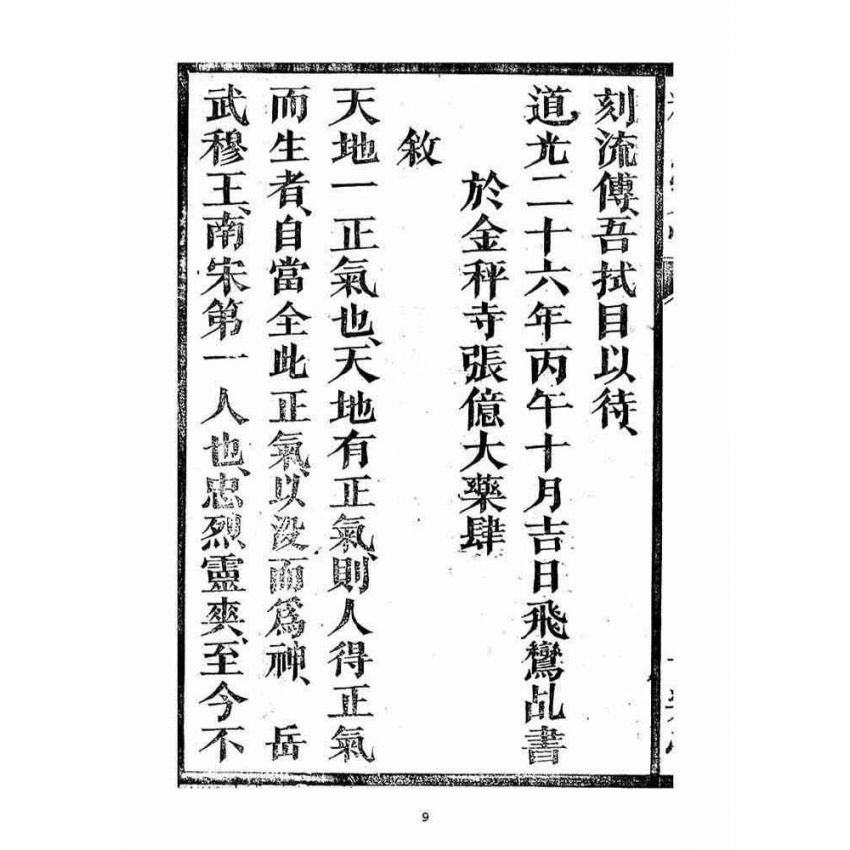 刻流傳、吾拭目以待、
道光二十六年丙午十月吉日飛鸞乩書
於金秤寺張億大藥肆
敘
天地一正氣也、天地有正氣、則人得正氣
而生者、自當全此正氣、以沒而爲神、 岳
武穆王、南宋第一人也、忠烈靈爽、至今不
9